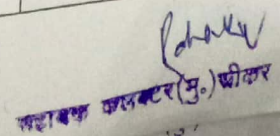 सहायक कलक्टर (मु.) सीकर